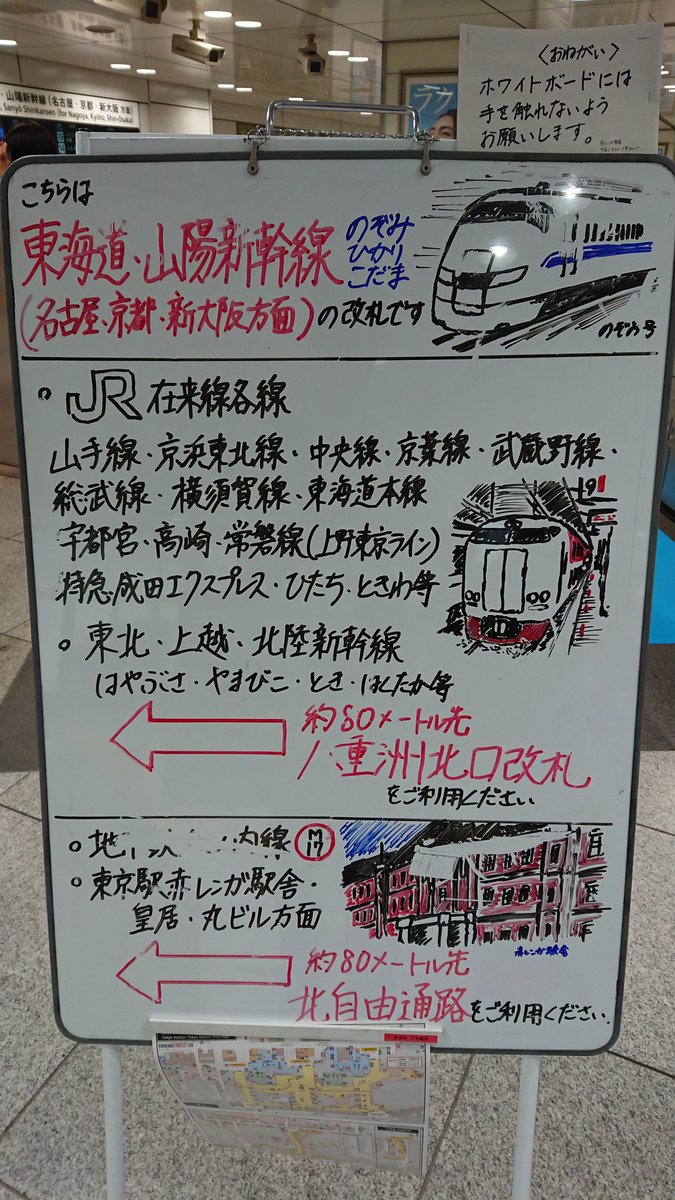 ・山陽新幹線(名古屋・京都・新大阪 方面)
Sanyō Shinkansen (for Nagoya, Kyoto, Shin-Osaka)
ラク
〈おねがい〉
ホワイトボードには
手を触れないよう
お願いします。
こちらは
東海道・山陽新幹線
のぞみ
ひかり
こだま
(名古屋・京都・新大阪方面)の改札です
のぞみ号
・JR在来線各線
山手線・京浜東北線・中央線・京葉線・武蔵野線・
総武線・横須賀線・東海道本線
宇都宮・高崎・常磐線(上野東京ライン)
特急成田エクスプレス・ひたち・ときわ等
・東北・上越・北陸新幹線
はやぶさ・やまびこ・とき・はくたか等
約80メートル先
八重洲北口改札
をご利用ください
・地 内線 M17
・東京駅赤レンガ駅舎・
皇居・丸ビル方面
赤レンガ駅舎
約80メートル先
北自由通路をご利用ください